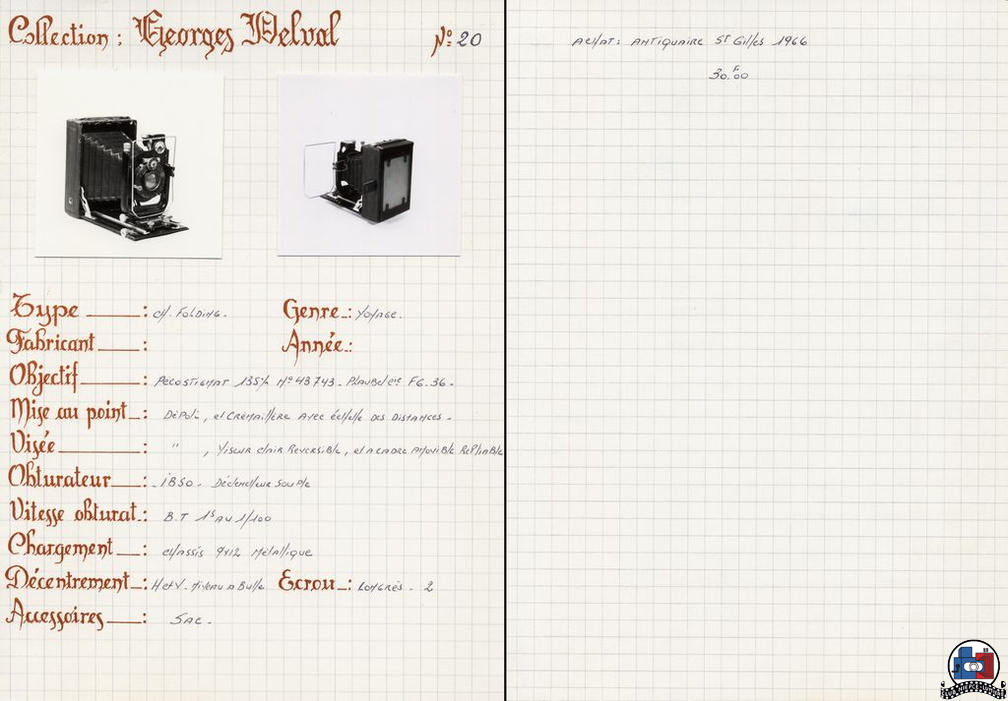 Collection : Georges Delval Nº 20
Type : ch. Folding. Genre : Voyage.
Fabricant : Année :
Objectif : 135 Nº 43743 - F6.36 -
Mise au point : Dépoli, et Crémaillère avec échelle des Distances -
Visée : " , Viseur clair Reversible, et a cadre amovible Repliable
Obturateur : - 1850 - Déclencheur Souple
Vitesse obturat : B.T 1s au 1/100
Chargement : chassis 9x12 Métallique
Décentrement : H et V - Niveau a Bulle Ecrou : Congrès - 2
Accessoires : Sac -
Achat : Antiquaire St Gilles 1966
30.F00